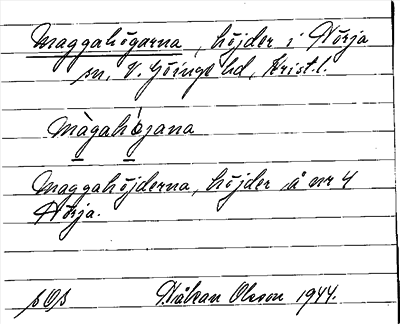 Maggahögarna, höjder i Nörja
sn, V. Göinge hd, Krist.l.
Màgahö́jana
Maggahöjderna, höjder å nr 4
Nörja.
Håkan Olsson 1944.